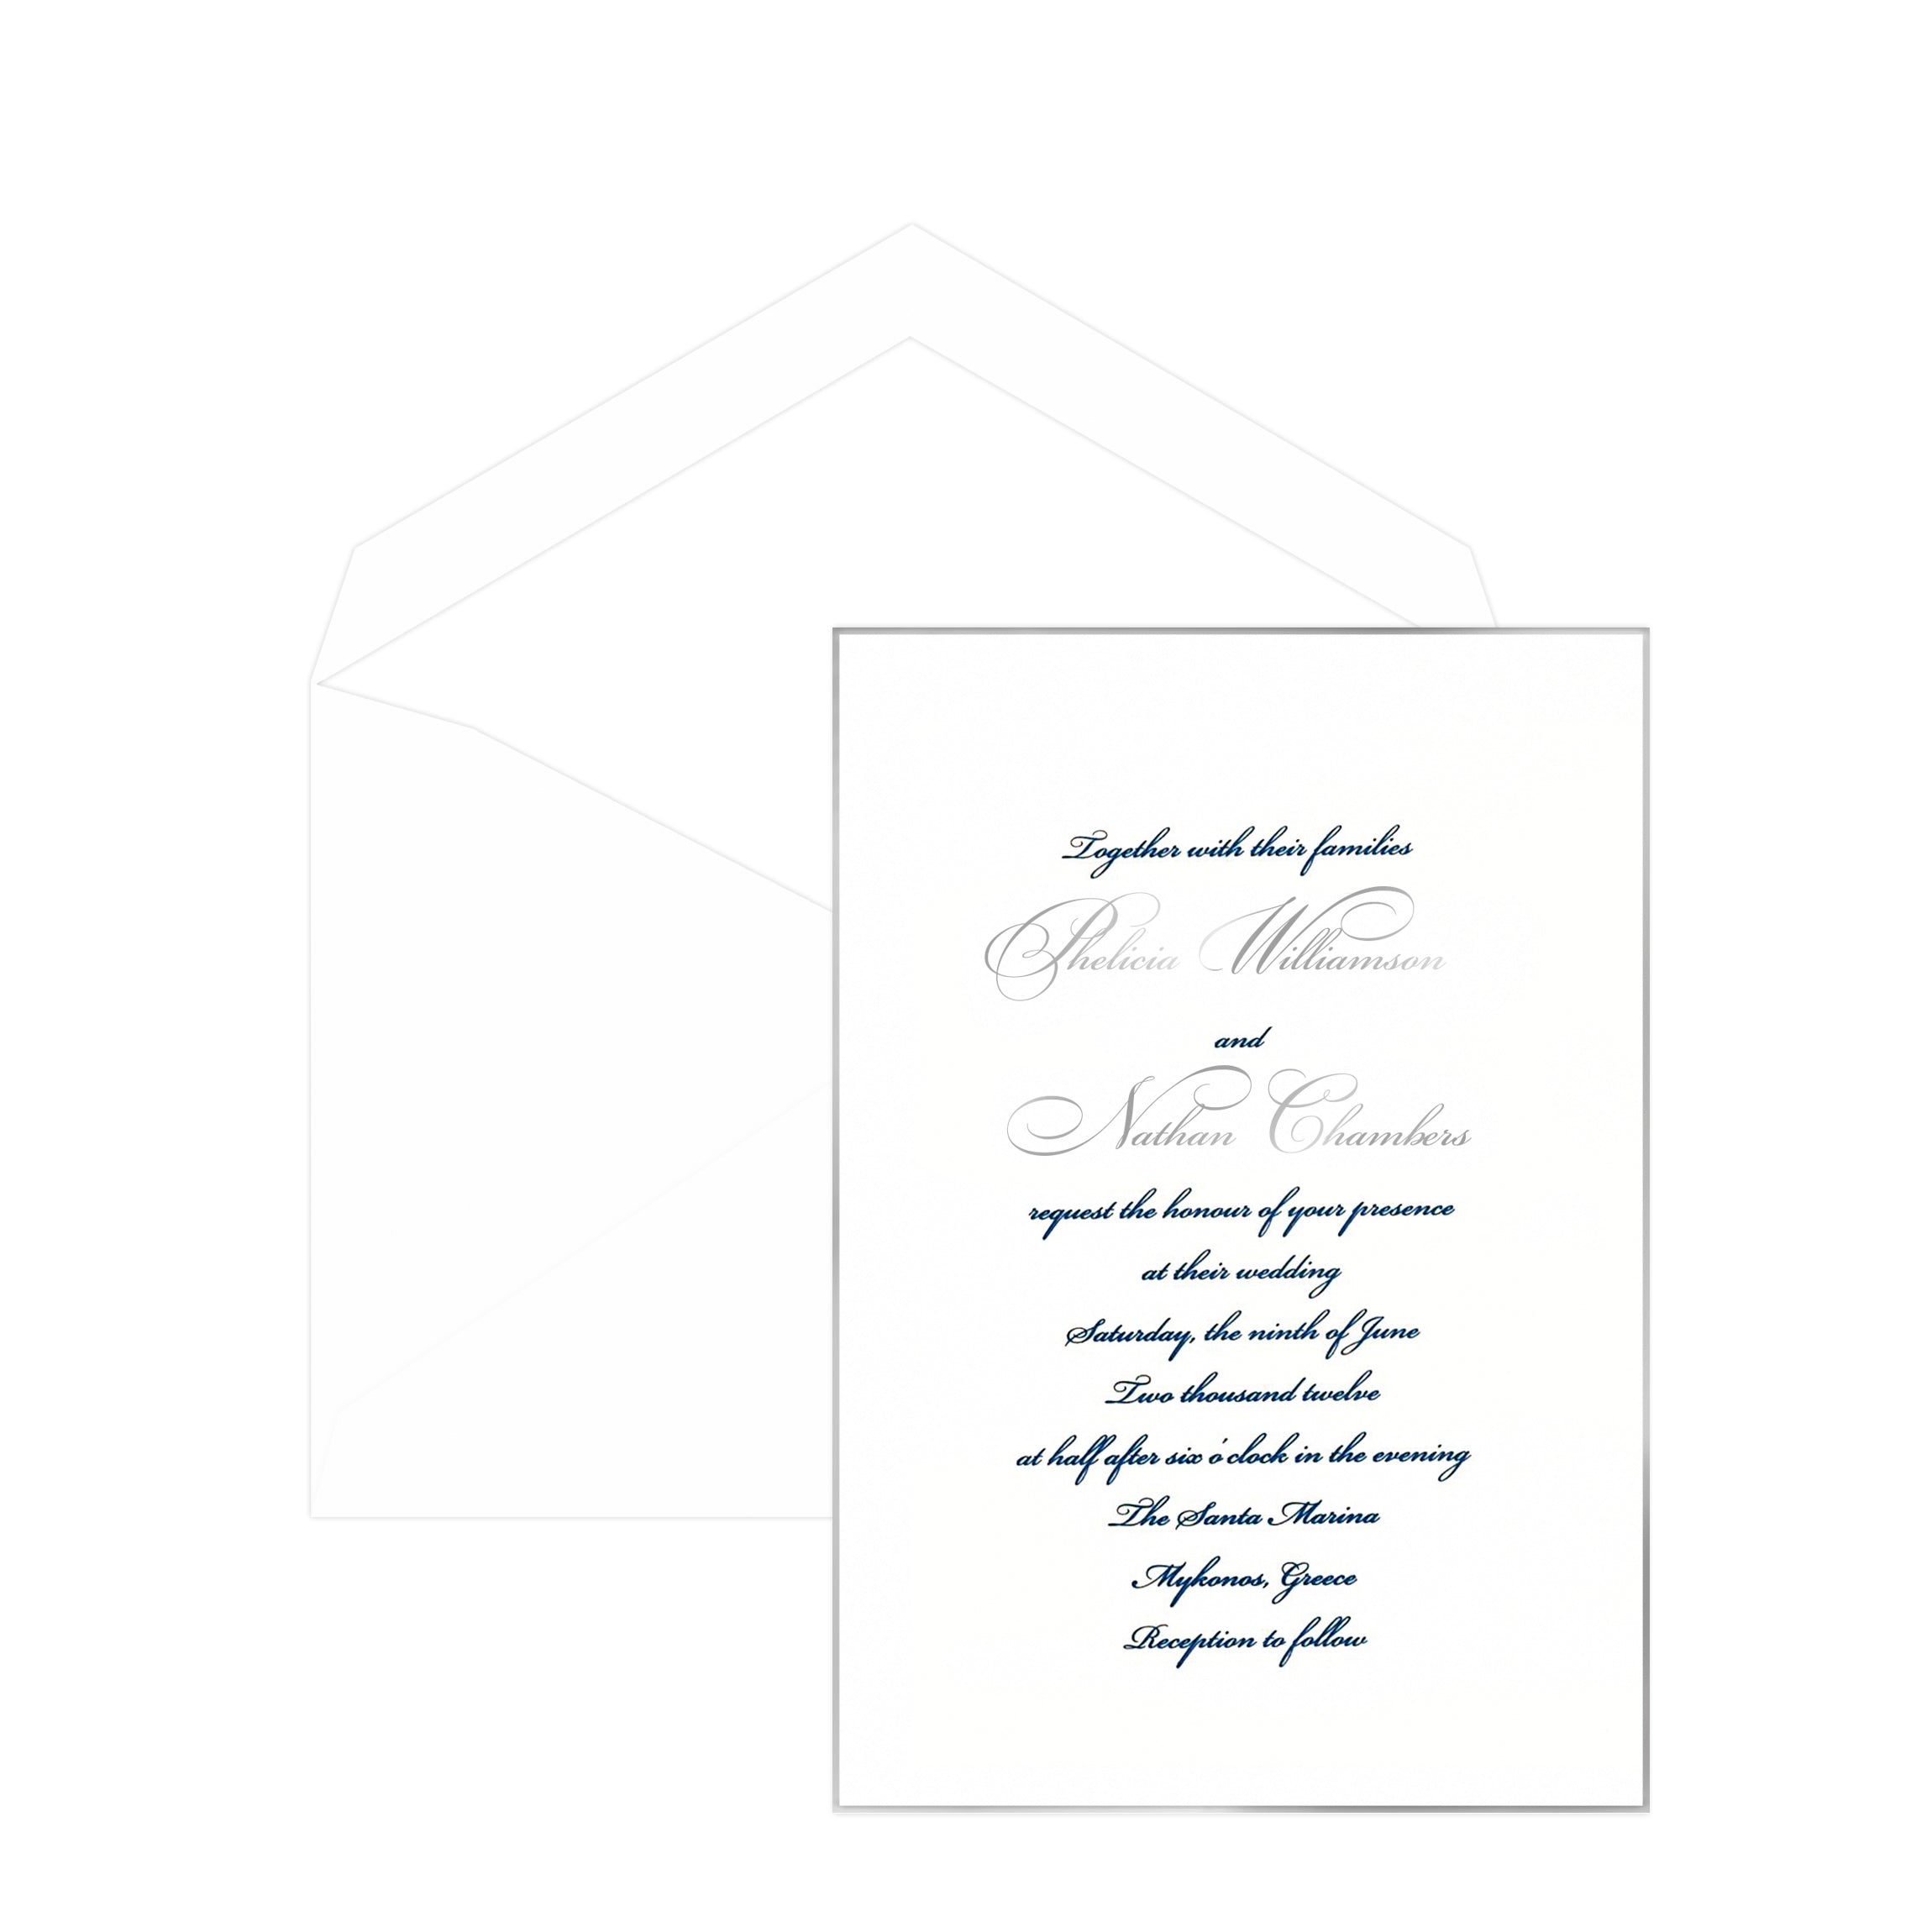 Together with their families
Phelicia Williamson
and
Nathan Chambers
request the honour of your presence
at their wedding
Saturday, the ninth of June
Two thousand twelve
at half after six o'clock in the evening
The Santa Marina
Mykonos, Greece
Reception to follow